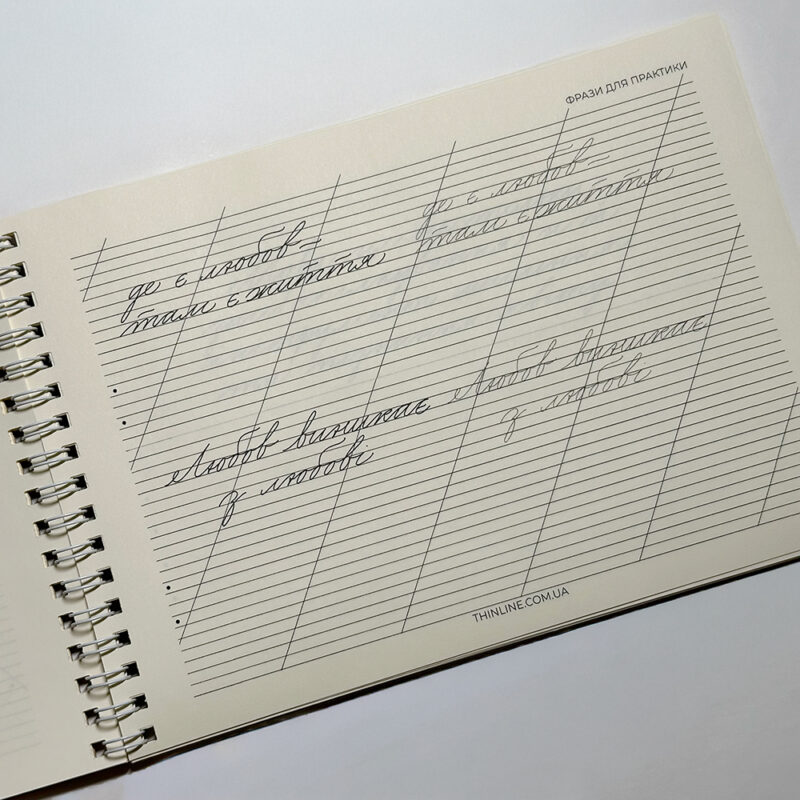 ФРАЗИ ДЛЯ ПРАКТИКИ
де є любов –
там є життя
де є любов –
там є життя
Любов виникає
з любові
Любов виникає
з любові
THINLINE.COM.UA